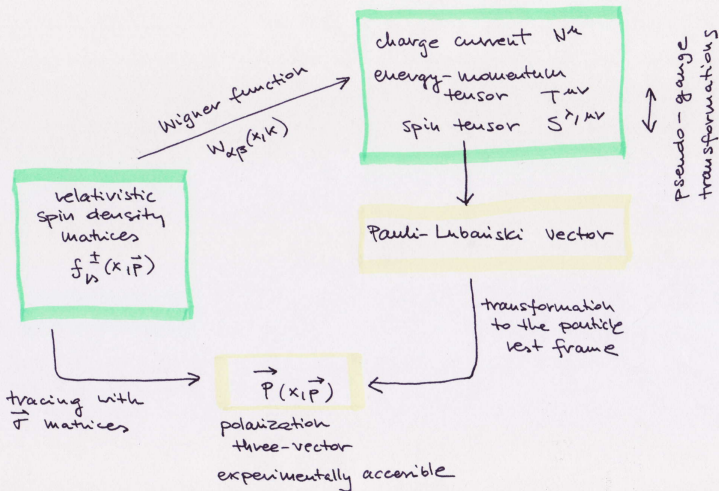 charge current N^μ
energy-momentum
tensor T^μν
spin tensor S^λ,μν
pseudo-gauge
transformations
Wigner function
W_αβ(x,k)
relativistic
spin density
matrices
f^±_rs(x,p⃗)
Pauli-Lubański vector
transformation
to the particle
rest frame
tracing with
σ⃗ matrices
P⃗(x,p⃗)
polarization
three-vector
experimentally accesible